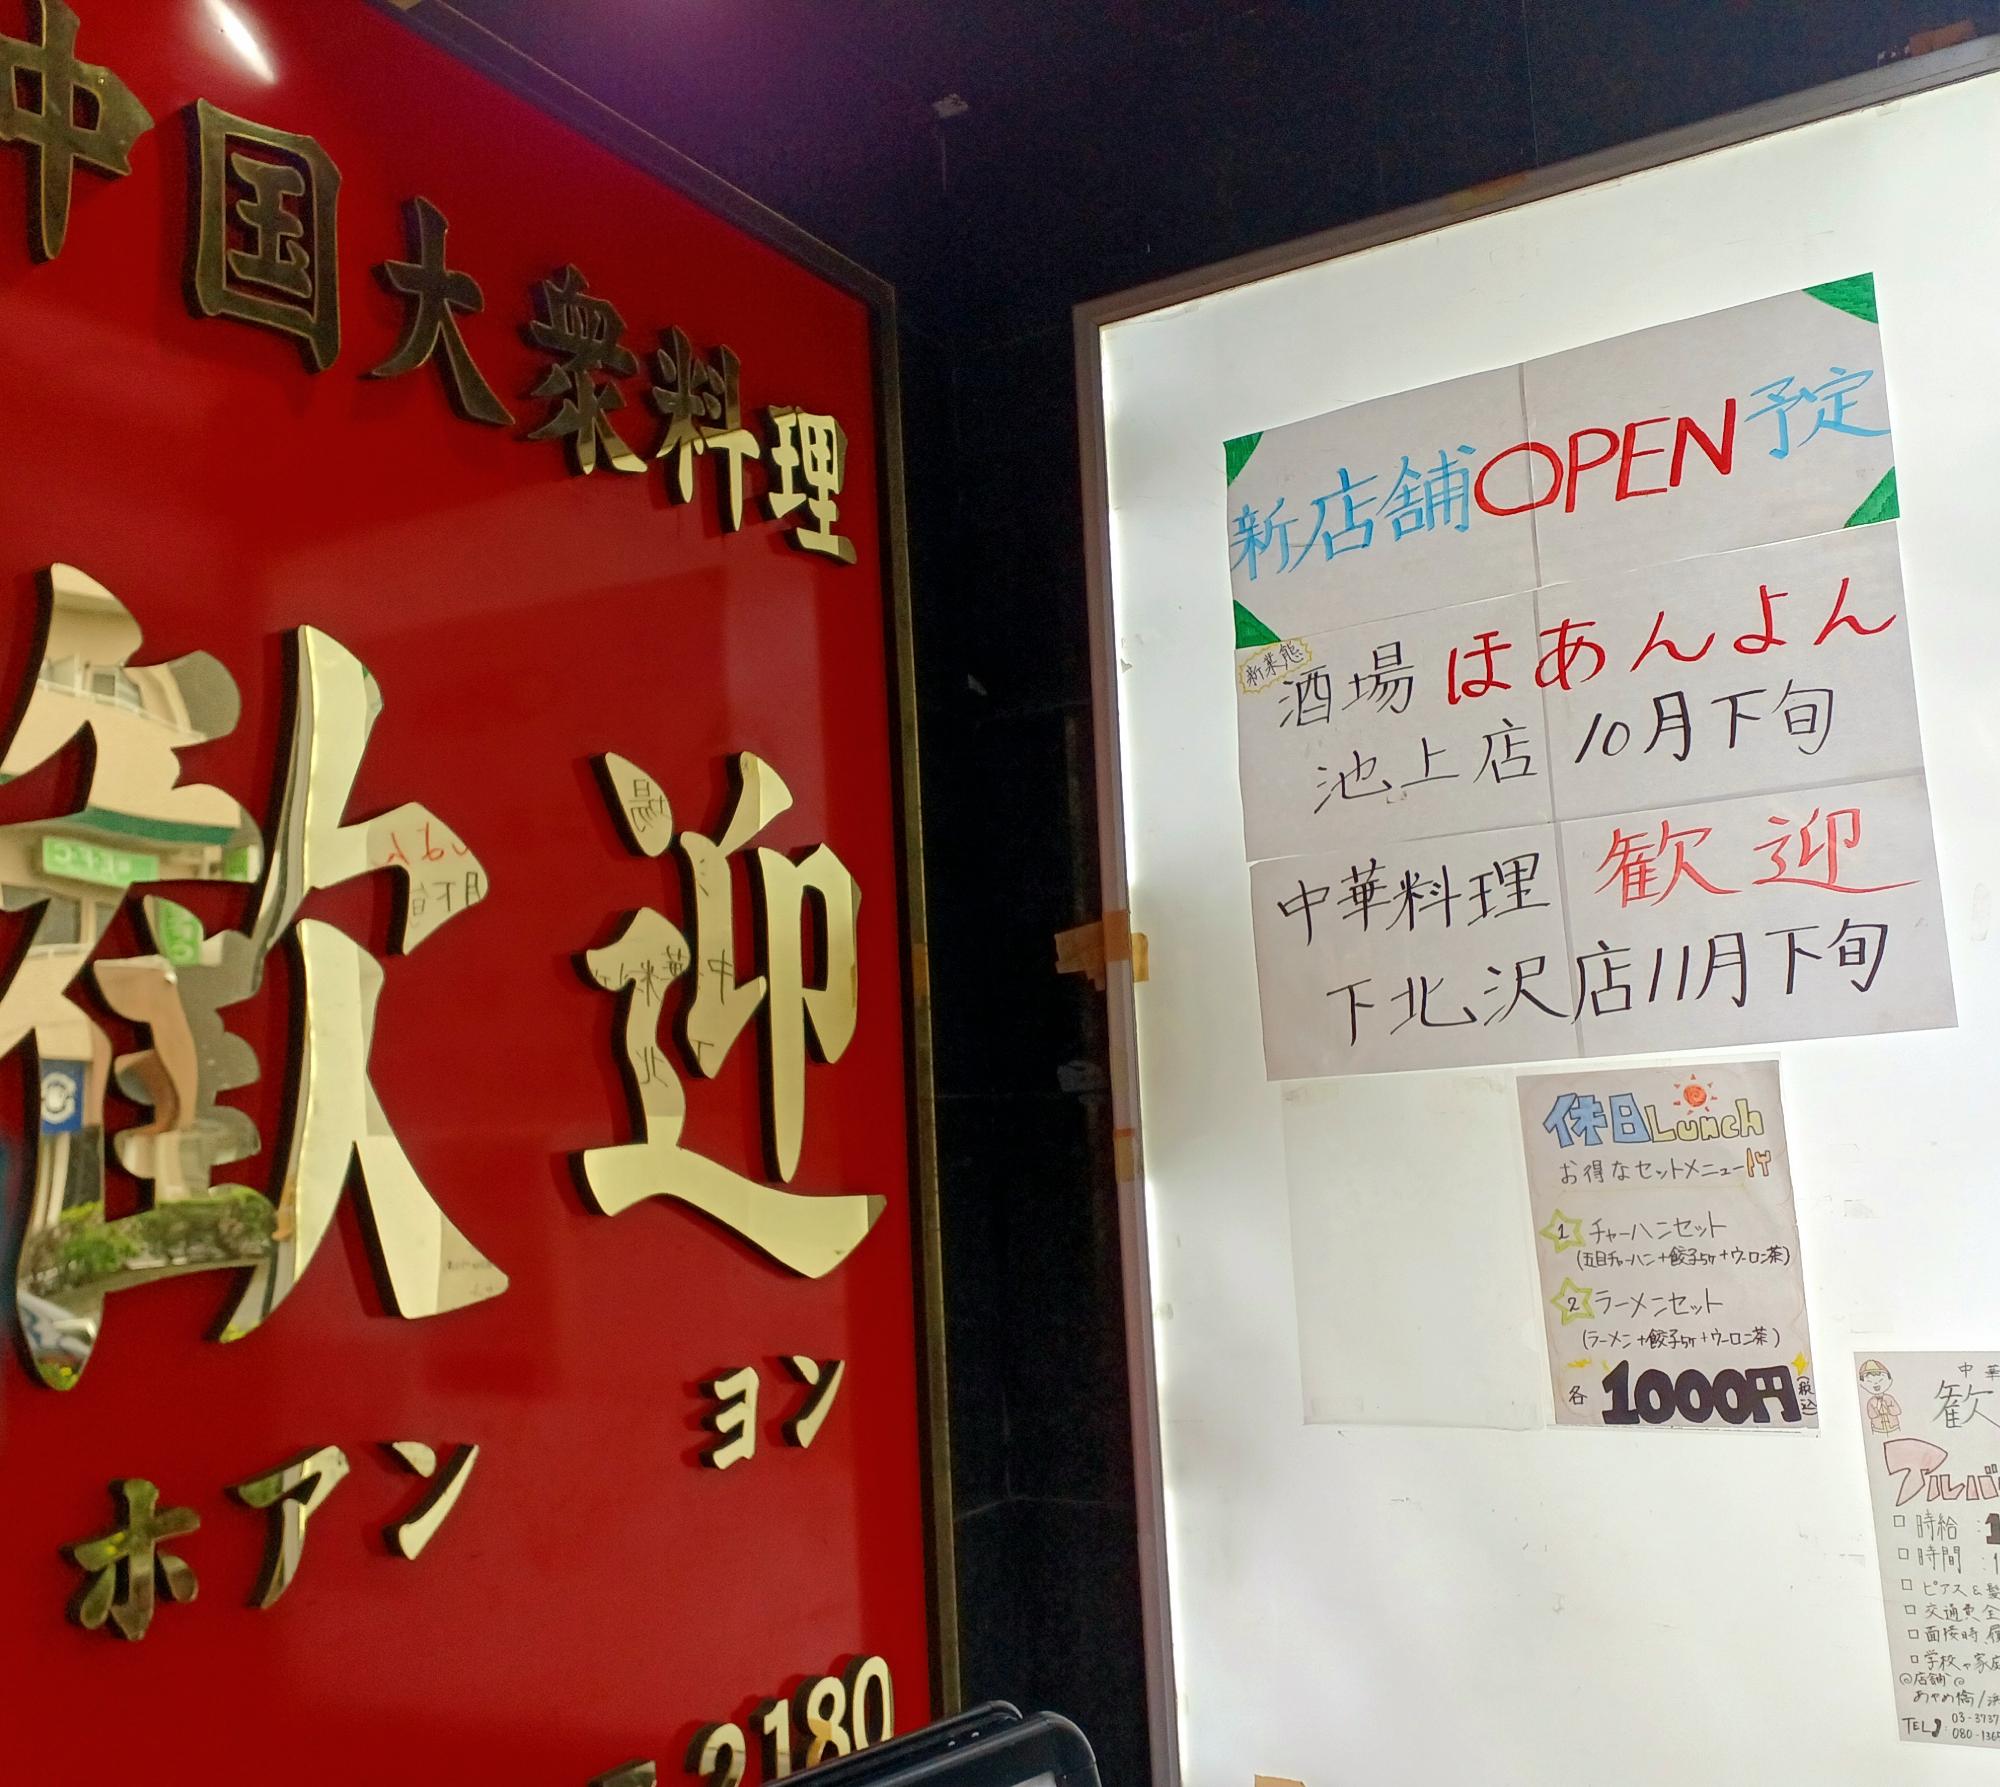 中国大衆料理
歓迎
ホアンヨン
2180
新店舗OPEN予定
新業態
酒場 ほあんよん
池上店 10月下旬
中華料理 歓迎
下北沢店11月下旬
休日Lunch
お得なセットメニュー!!
1 チャーハンセット
(五目チャーハン+餃子5ヶ+ウーロン茶)
2 ラーメンセット
(ラーメン+餃子5ヶ+ウーロン茶)
各 1000円(税込)
中華
歓
アルバ
□時給:1
□時間:1
□ピアス&髪
□交通費全
□面接時、履
□学校や家庭
◎店舗◎
あやめ橋/浜
TEL 03-3737
080-136